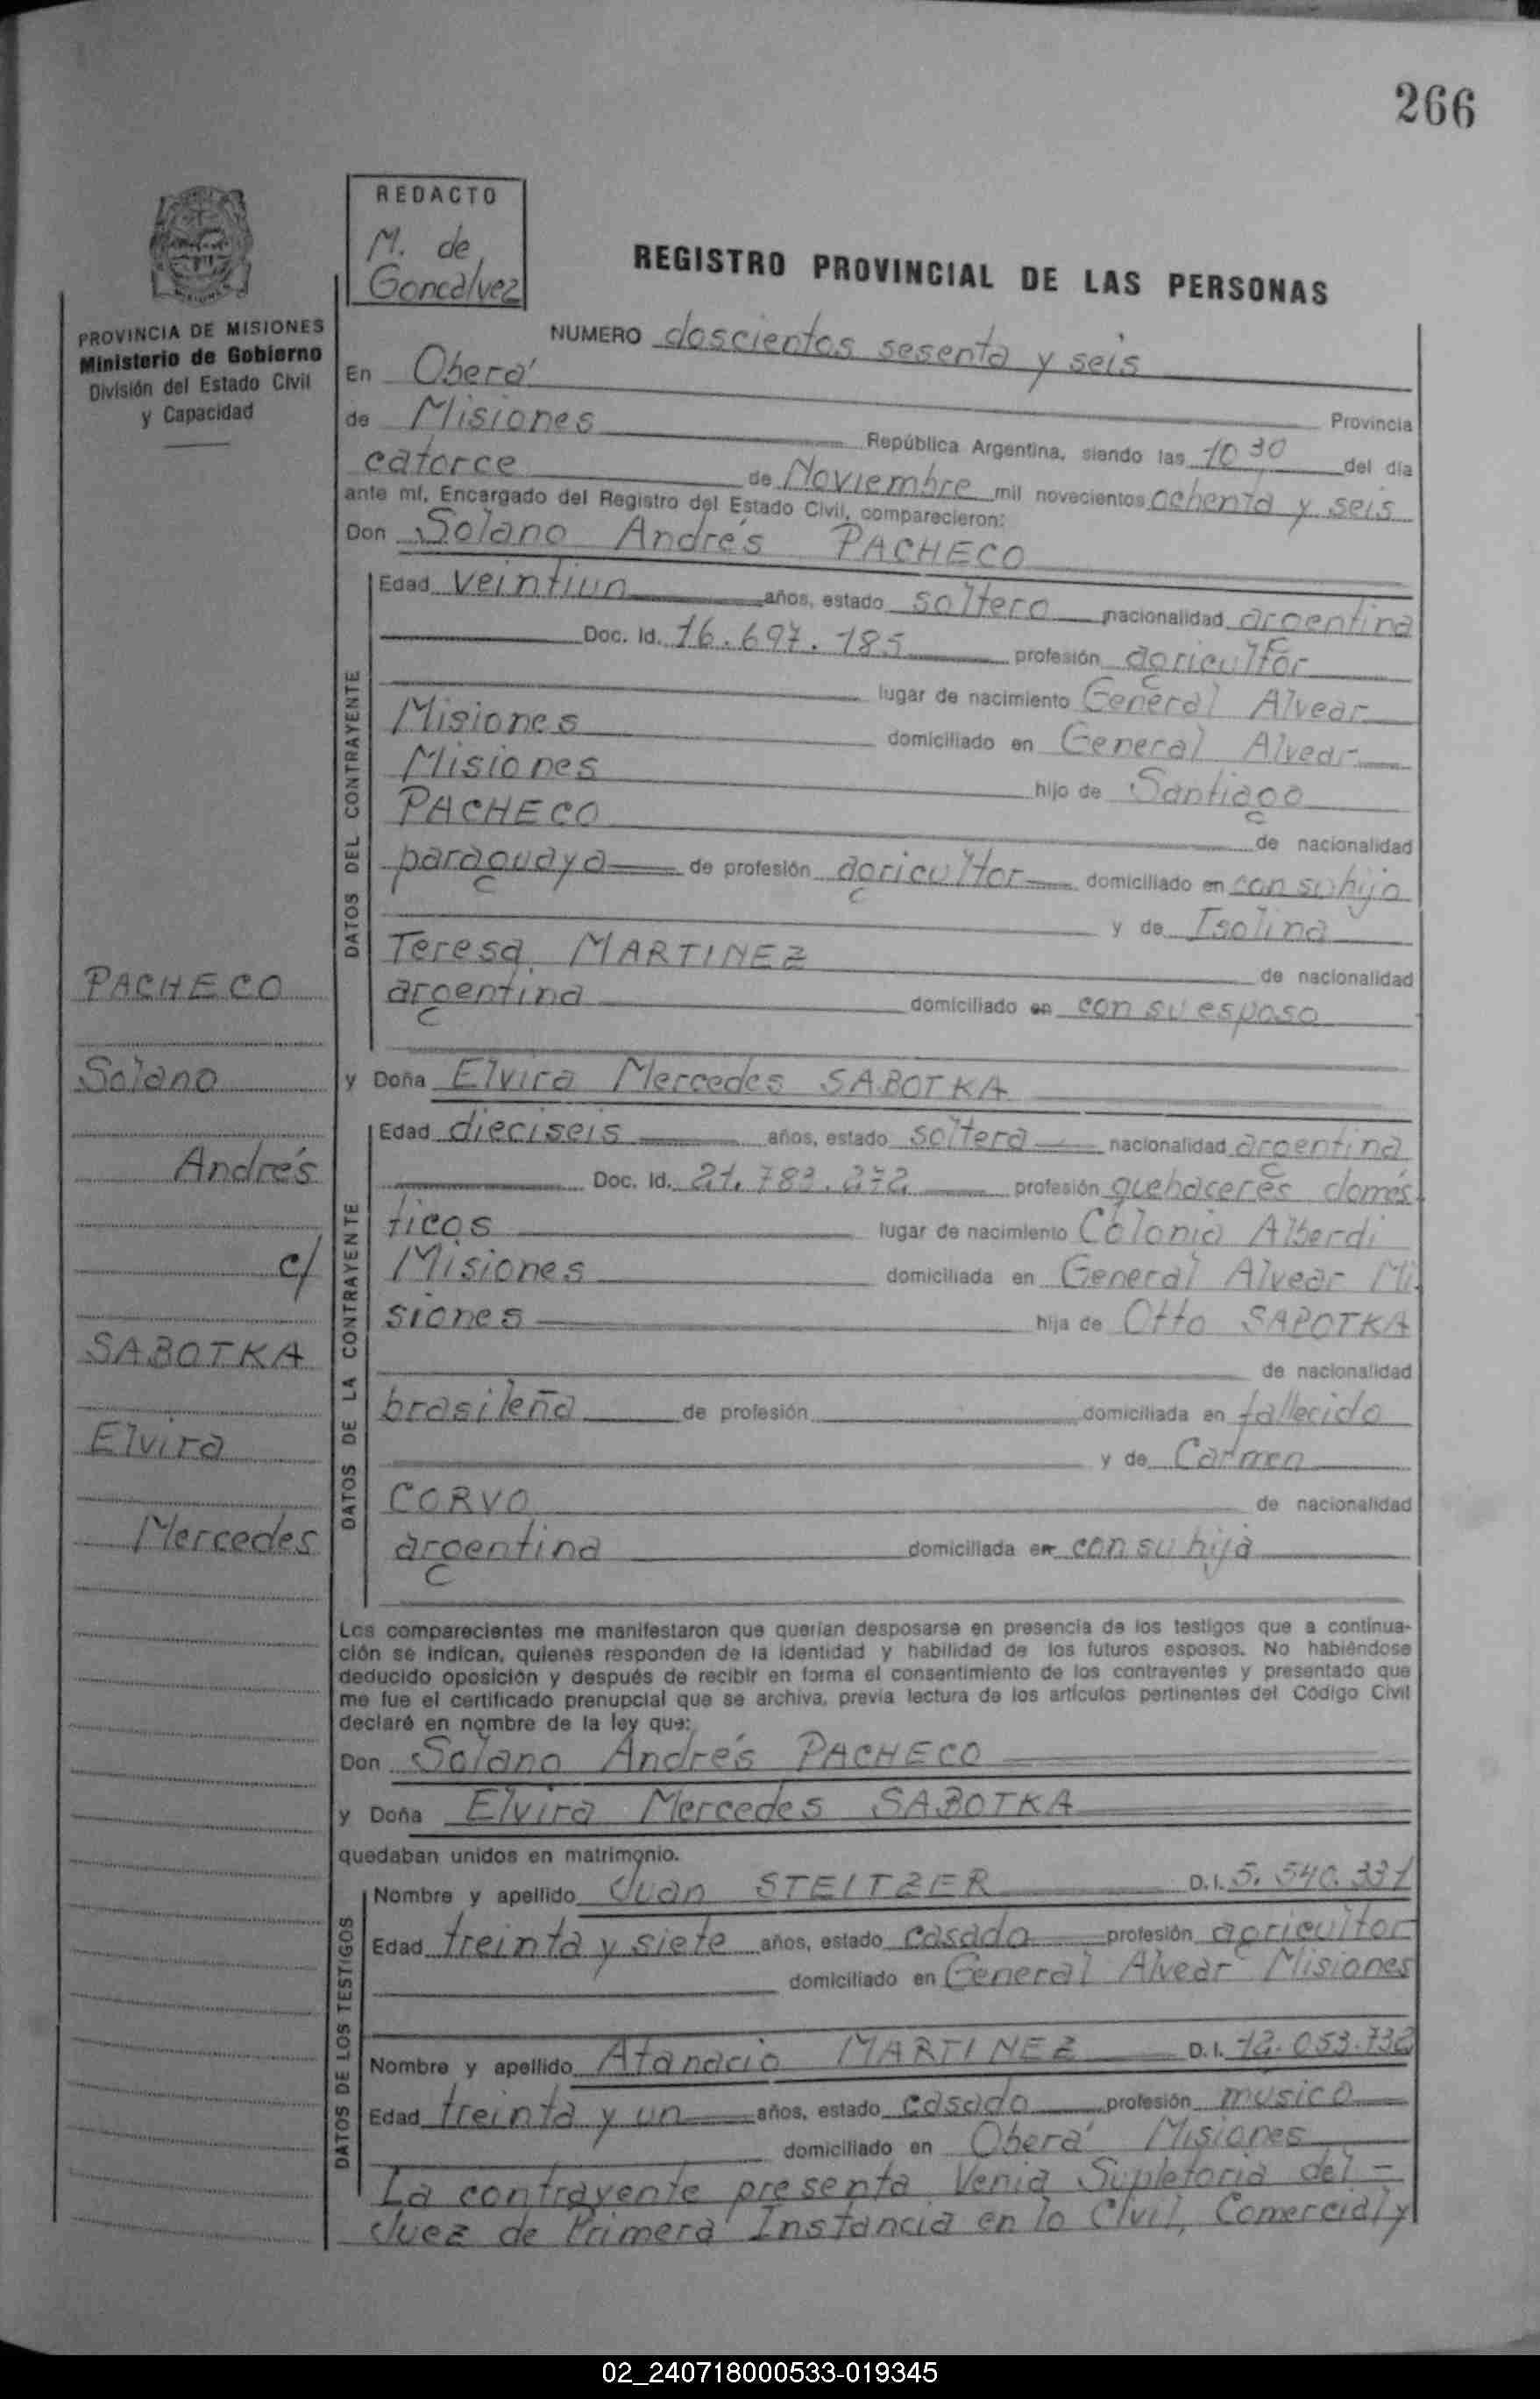 266
REDACTO
M. de
Goncalvez
REGISTRO PROVINCIAL DE LAS PERSONAS
PROVINCIA DE MISIONES
Ministerio de Gobierno
División del Estado Civil
y Capacidad
NUMERO doscientos sesenta y seis
En Oberá Provincia
de Misiones República Argentina, siendo las 10 30 del día
catorce de Noviembre mil novecientos ochenta y seis
ante mí, Encargado del Registro del Estado Civil, comparecieron:
Don Solano Andrés PACHECO
DATOS DEL CONTRAYENTE
Edad veintiun años, estado soltero nacionalidad argentina
Doc. Id. 16.697.185 profesión agricultor
lugar de nacimiento General Alvear
Misiones domiciliado en General Alvear
Misiones hijo de Santiago
PACHECO de nacionalidad
paraguaya de profesión agricultor domiciliado en con su hijo
y de Isolina
Teresa MARTINEZ de nacionalidad
argentina domiciliado en con su esposo
y Doña Elvira Mercedes SABOTKA
DATOS DE LA CONTRAYENTE
Edad dieciseis años, estado soltera nacionalidad argentina
Doc. Id. 21.783.272 profesión quehaceres domés
ticos lugar de nacimiento Colonia Alberdi
Misiones domiciliada en General Alvear Mi
siones hija de Otto SABOTKA
de nacionalidad
brasileña de profesión domiciliada en fallecido
y de Carmen
CORVO de nacionalidad
argentina domiciliada en con su hija
PACHECO
Solano
Andrés
c/
SABOTKA
Elvira
Mercedes
Los comparecientes me manifestaron que querían desposarse en presencia de los testigos que a continua-
ción se indican, quienes responden de la identidad y habilidad de los futuros esposos. No habiéndose
deducido oposición y después de recibir en forma el consentimiento de los contrayentes y presentado que
me fue el certificado prenupcial que se archiva, previa lectura de los artículos pertinentes del Código Civil
declaré en nombre de la ley que:
Don Solano Andrés PACHECO
y Doña Elvira Mercedes SABOTKA
quedaban unidos en matrimonio.
DATOS DE LOS TESTIGOS
Nombre y apellido Juan STEITZER D.I. 5.540.331
Edad treinta y siete años, estado casado profesión agricultor
domiciliado en General Alvear Misiones
Nombre y apellido Atanacio MARTINEZ D.I. 12.053.732
Edad treinta y un años, estado casado profesión músico
domiciliado en Oberá Misiones
La contrayente presenta Venia Supletoria del -
Juez de Primera Instancia en lo Civil, Comercial y
02_240718000533-019345